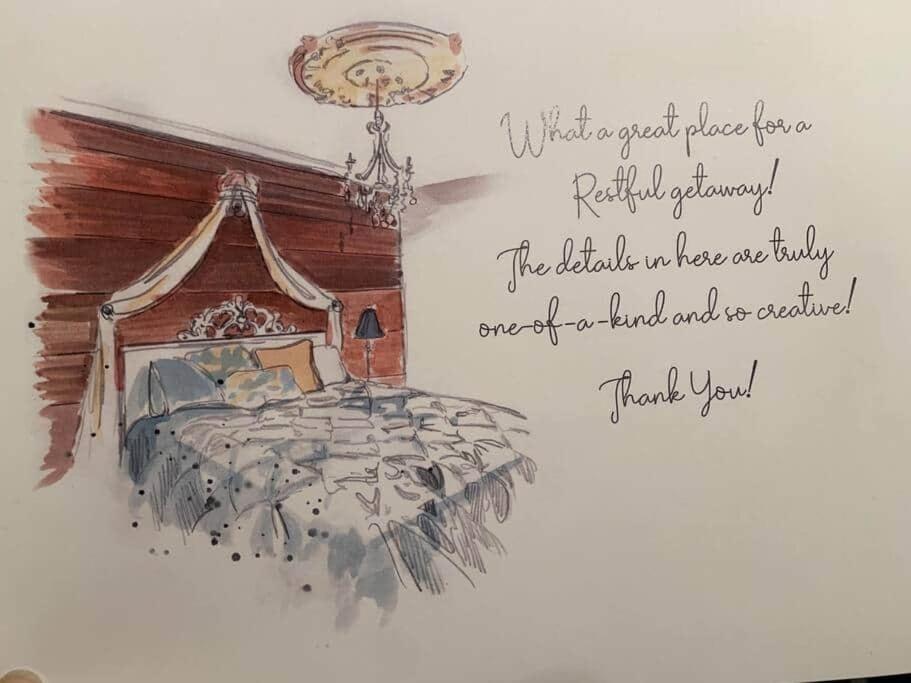 What a great place for a
Restful getaway!
The details in here are truly
one-of-a-kind and so creative!
Thank You!